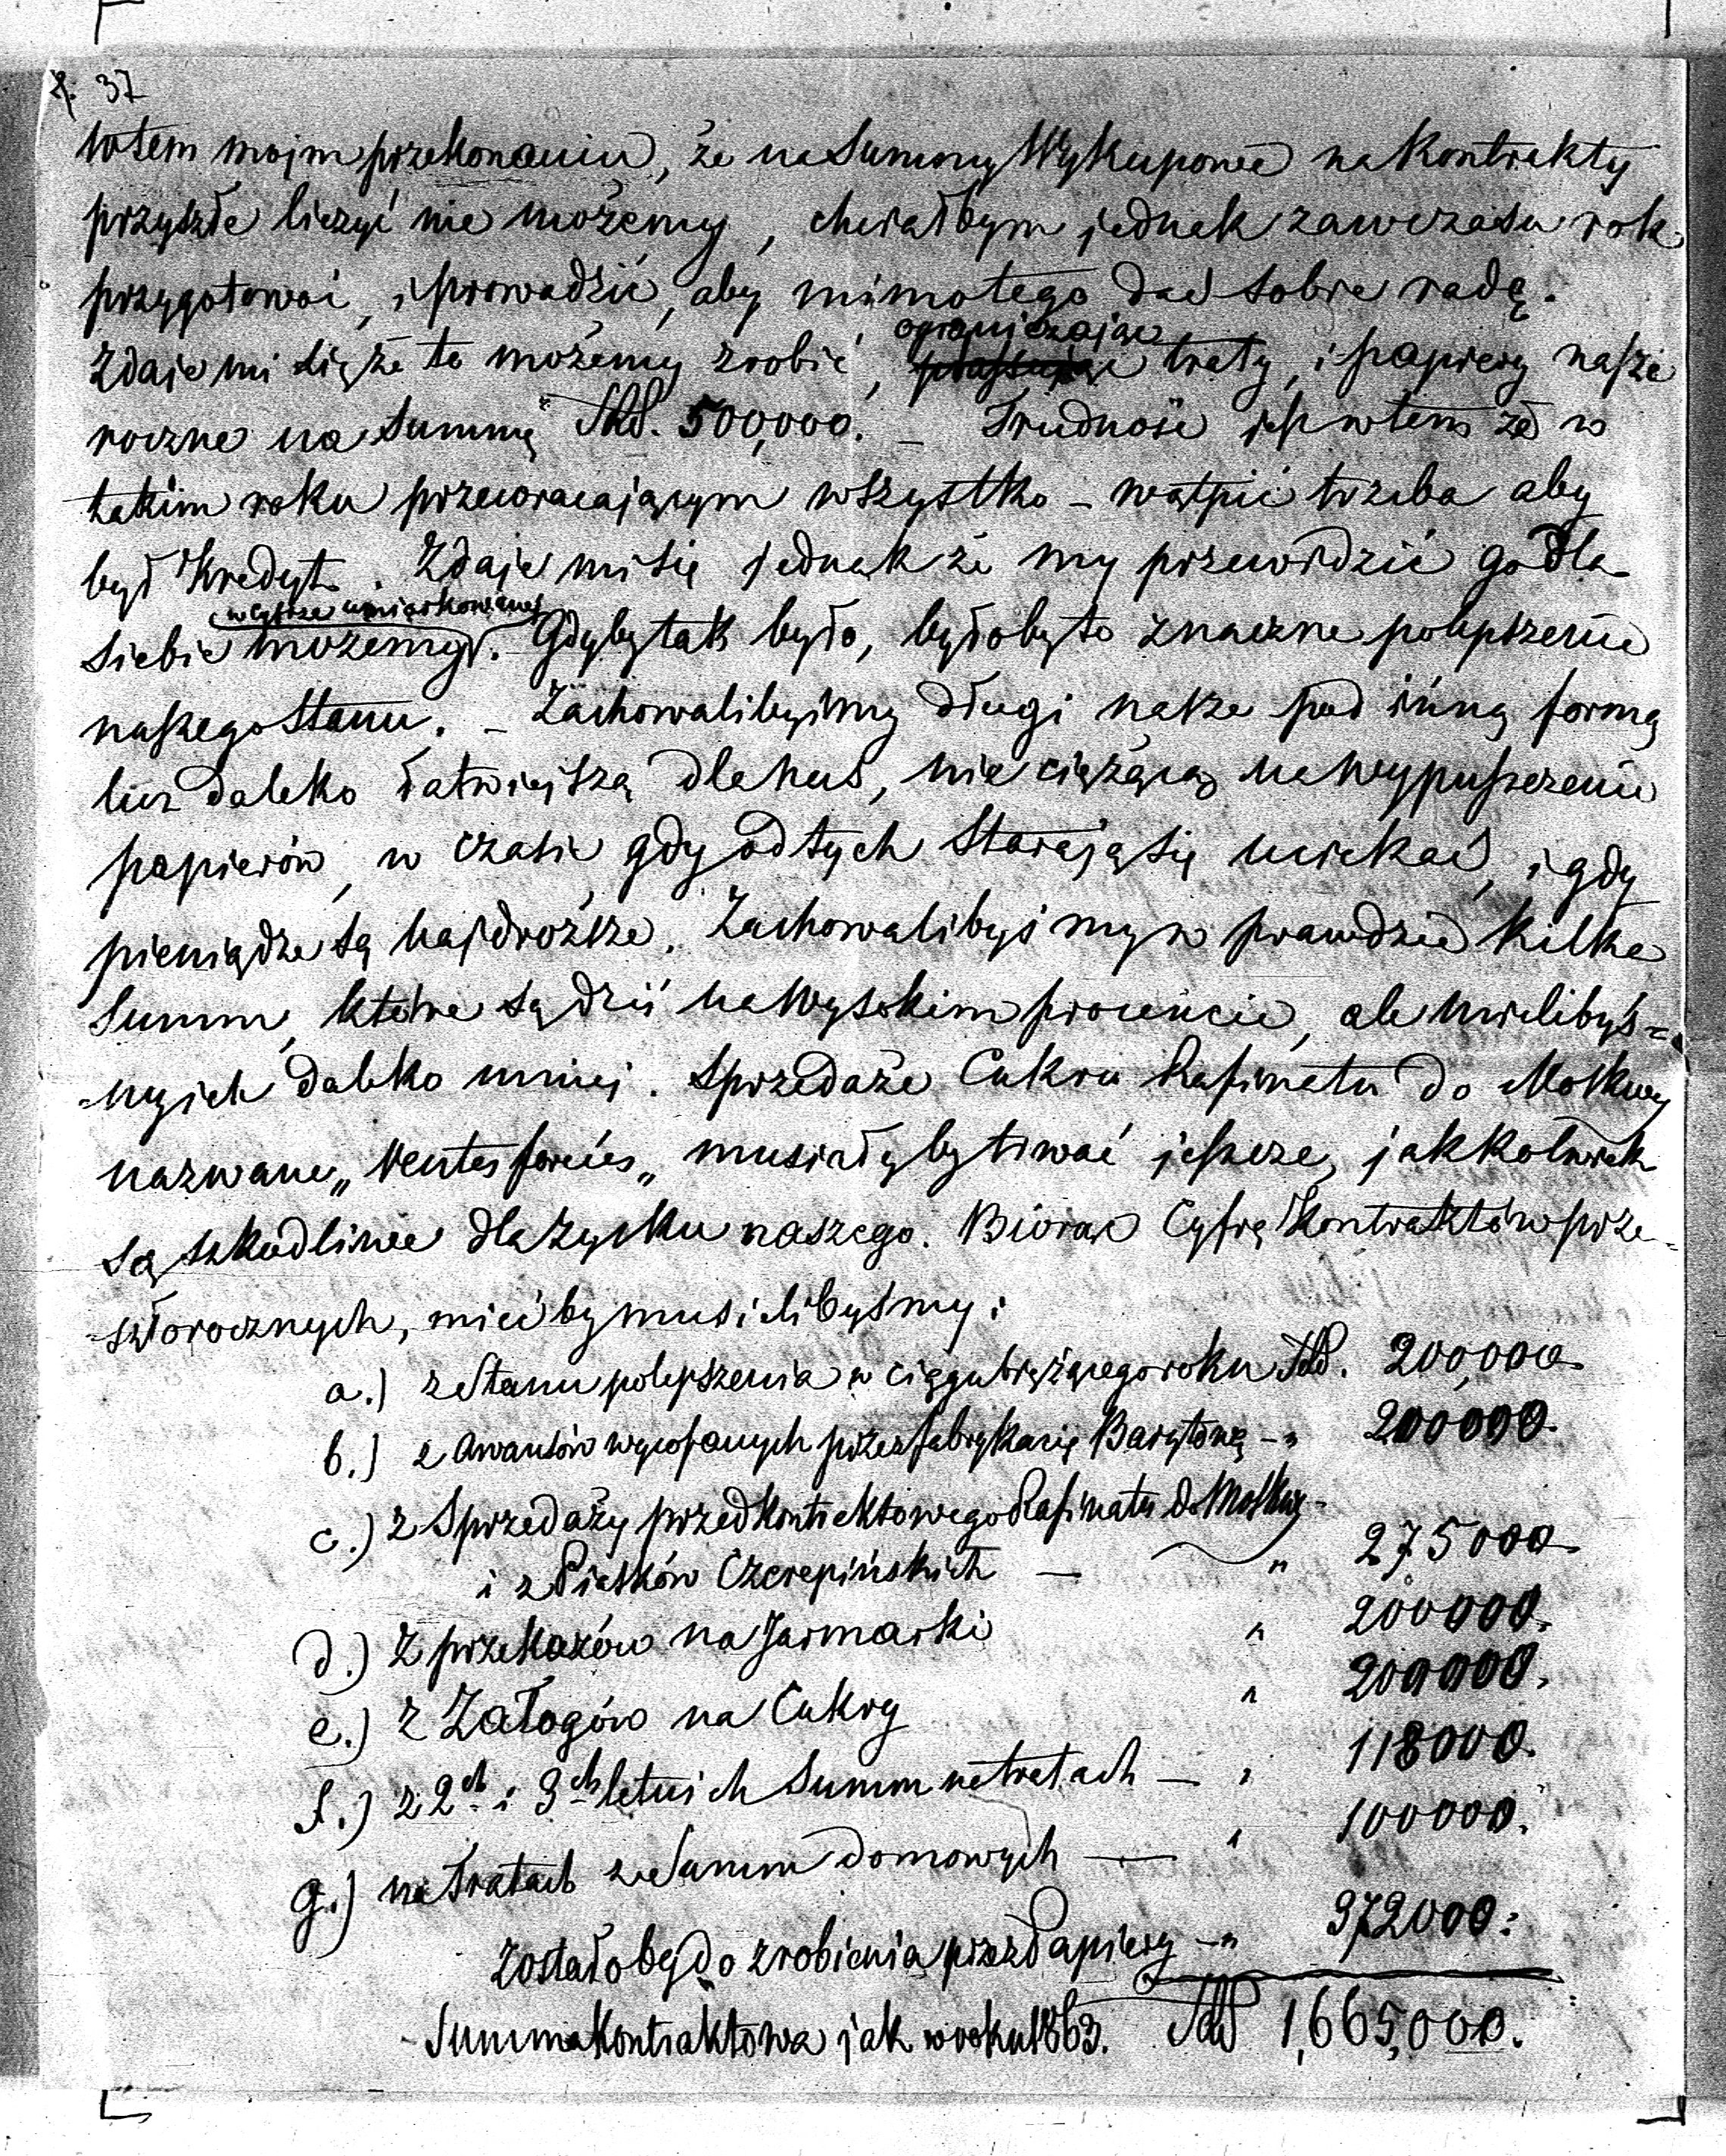 37
w tem mojem przekonaniu, że na Summy Wykupowe na Kontrakty
przyszłe liczyć nie możemy, chciałbym jednak zawczasu rok
przygotować, i prowadzić, aby mimo tego dać sobie radę.
ograniczając
Zdaje mi się że to możemy zrobić, traty, i papiery nasze
roczne na Summę 500,000. — Trudność jest w tem że w
takim roku przewracającym wszystko — wątpić trzeba aby
był Kredyt. Zdaje mi się jednak że my przewidzić go dla
w cyfrze umiarkowanej
siebie możemy. Gdyby tak było, byłoby to znaczne polepszenie
naszego Stanu. — Zachowalibyśmy długi nasze pod inną formą
lecz daleko łatwiejszą dla nas, nie ciążącą na wypuszczeniu
papierów, w czasie gdy od tych Starają się uciekać, i gdy
pieniądze są najdroższe. Zachowalibyśmy w prawdzie kilka
Summ, które są dziś na wysokim procencie, ale mielibyś=
=my ich daleko mniej. Sprzedaże Cukru Rafinatu do Moskwy
nazwane „Ventes forcées„ musiałyby trwać jeszcze, jakkolwiek
są szkodliwe dla zysku naszego. Biorąc Cyfrę Kontraktów prze=
=szłorocznych, mieć by musielibyśmy:
a.) ze Stanu polepszenia w ciągu bieżącego roku 200,000.
b.) z Awansów wycofanych przez fabrykację Barytową — " 200000.
c.) z Sprzedaży przedkontraktowego Rafinatu do Moskwy
i z Piasków Czerepińskich — " 275000
d.) Z przekazów na Jarmarki " 200000.
e.) z Załogów na Cukry " 200000.
f.) z 2ch i 3ch letnich Summ na tratach — " 118000.
g.) na tratach ze Summ domowych — " 100000.
Zostałoby do zrobienia przez Papiery — " 372000.
Summa Kontraktowa jak w roku 1863. 1,665,000.